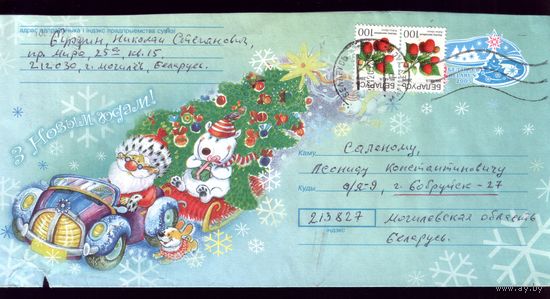 адрас адпраўніка і індэкс прадпрыемства сувязі
Николай Степанович,
пр. Мира, 25а кв. 15,
212030, г. Могилёв, Беларусь.
З Новым годам!
100 100
БЕЛАРУСЬ БЕЛАРУСЬ
Каму Саленому,
Леониду Константиновичу
Куды а/я-9, г. Бобруйск-27
213827 Могилевская область
індэкс Беларусь.
www.ay.by